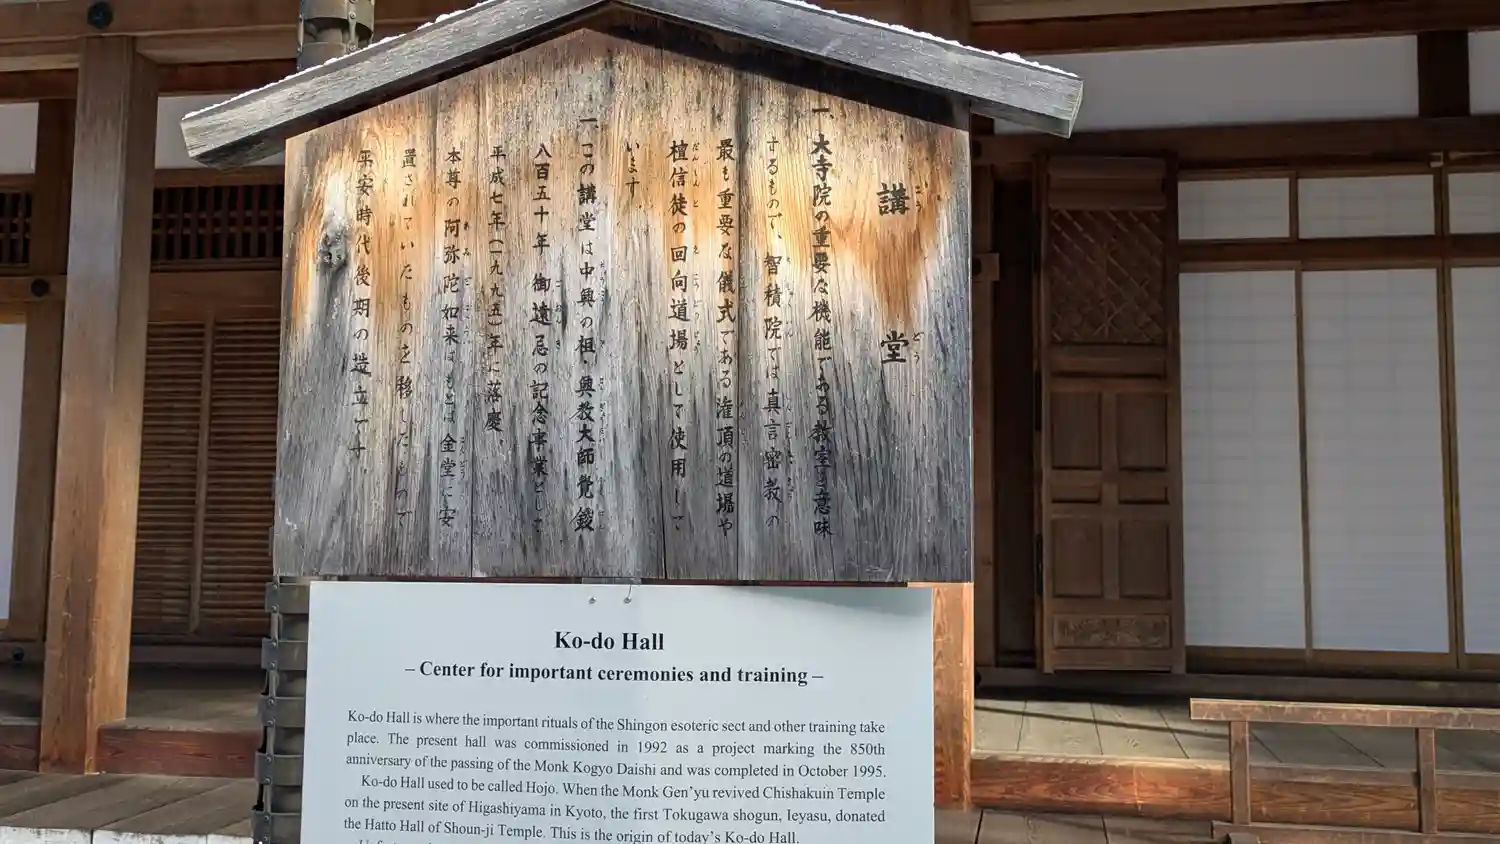 講堂
一、大寺院の重要な機能である教室を意味
するもので、智積院では真言密教の
最も重要な儀式である潅頂の道場や
檀信徒の回向道場として使用して
います。
一、この講堂は中興の祖・興教大師覚鑁
八百五十年御遠忌の記念事業として
平成七年(一九九五)年に落慶、
本尊の阿弥陀如来はもとは金堂に安
置されていたものを移したもので
平安時代後期の造立です。
Ko-do Hall
– Center for important ceremonies and training –
Ko-do Hall is where the important rituals of the Shingon esoteric sect and other training take
place. The present hall was commissioned in 1992 as a project marking the 850th
anniversary of the passing of the Monk Kogyo Daishi and was completed in October 1995.
Ko-do Hall used to be called Hojo. When the Monk Gen'yu revived Chishakuin Temple
on the present site of Higashiyama in Kyoto, the first Tokugawa shogun, Ieyasu, donated
the Hatto Hall of Shoun-ji Temple. This is the origin of today's Ko-do Hall.